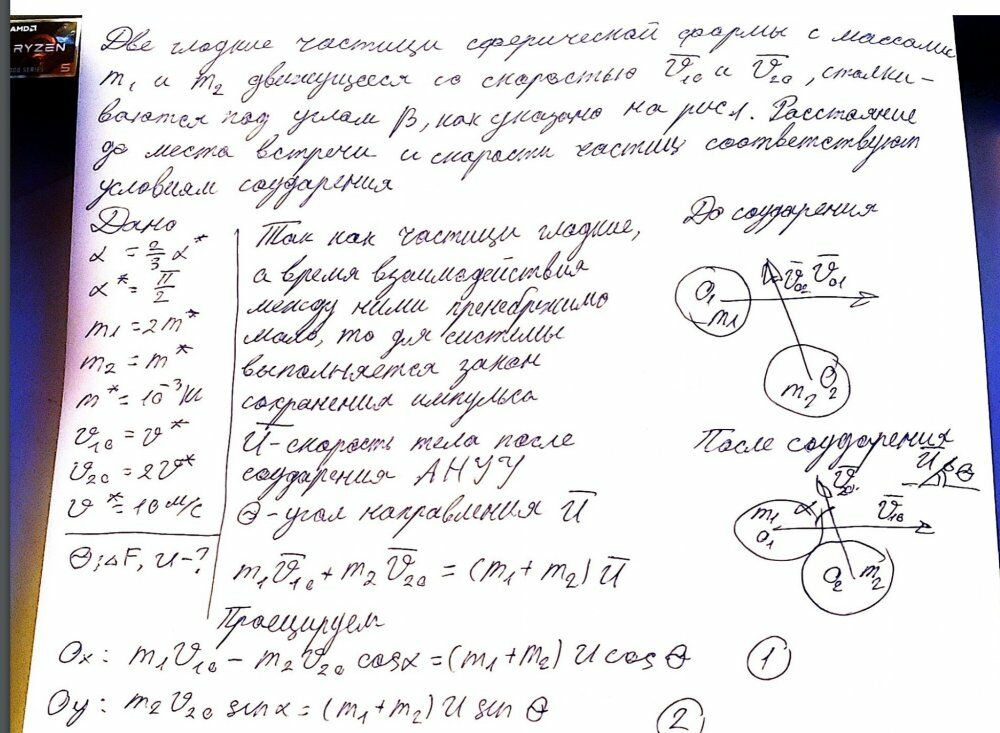 AMD
RYZEN
5
Две гладкие частицы сферической формы с массами
m₁ и m₂ движущееся со скоростью v̅₁₀ и v̅₂₀, сталки-
ваются под углом β, как указано на рис 1. Расстояние
до места встречи и скорости частиц соответствуют
условиям соударения
Дано
α = 2/3 α*
α* = π/2
m₁ = 2m*
m₂ = m*
m* = 10⁻³ кг
v₁₀ = v*
v₂₀ = 2v*
v* = 10 м/с
Θ; ΔF, U - ?
Так как частицы гладкие,
а время взаимодействия
между ними пренебрежимо
мало, то для системы
выполняется закон
сохранения импульса
U̅ - скорость тела после
соударения АНУУ
Θ - угол направления U̅
m₁v̅₁₀ + m₂v̅₂₀ = (m₁ + m₂) U̅
До соударения
O₁
m₁
v̅₀₂ v̅₀₁
m₂ O₂
После соударения
U̅ Θ
v̅₂₀
α
v̅₁₀
m₁
O₁
O₂ m₂
Проецируем
Ox: m₁v₁₀ - m₂v₂₀ cosα = (m₁ + m₂) U cos Θ (1)
Oy: m₂v₂₀ sinα = (m₁ + m₂) U sin Θ (2)